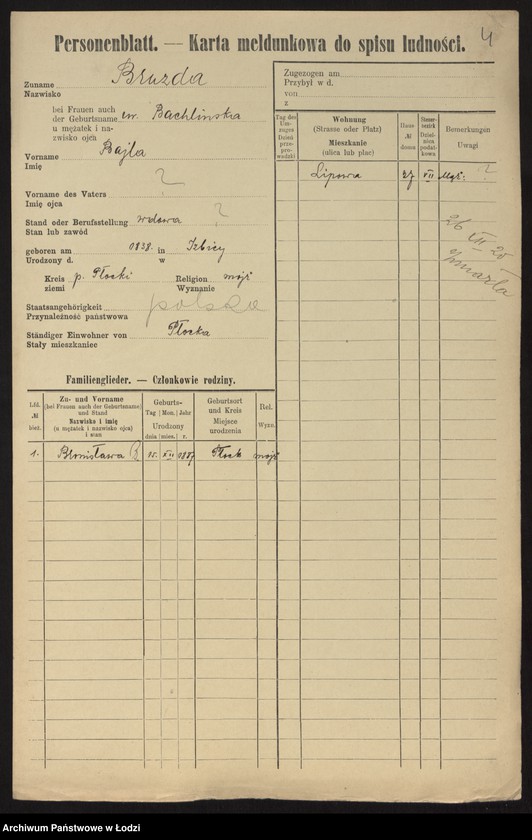 4
Personenblatt. — Karta meldunkowa do spisu ludności.
Zuname Bruzda
Nazwisko
bei Frauen auch
der Geburtsname Bachlińska
u mężatek i na-
zwisko ojca
Vorname Bajla
Imię
Vorname des Vaters ?
Imię ojca
Stand oder Berufsstellung wdowa ?
Stan lub zawód
geboren am 1838. in Izbicy
Urodzony d. w
Kreis p. Płocki Religion mojż
ziemi Wyznanie
Staatsangehörigkeit polska
Przynależność państwowa
Ständiger Einwohner von Płocka
Stały mieszkaniec
Zugezogen am
Przybył w d.
von
z
Tag des Um-zuges Dzień prze-prowadzki
Wohnung
(Strasse oder Platz)
Mieszkanie
(ulica lub plac)
Haus № domu
Steuer-bezirk Dzielnica podat-kowa
Bemerkungen
Uwagi
Lipowa 27 VII Mojż: ?
26 III 25
zmarła
Familienglieder. — Członkowie rodziny.
Lfd. № bież.
Zu- und Vorname
(bei Frauen auch der Geburtsname)
und Stand
Nazwisko i imię
(u mężatek i nazwisko ojca)
i stan
Geburts-
Tag Mon. Jahr
Urodzony
dnia mies. r.
Geburtsort
und Kreis
Miejsce
urodzenia
Rel.
Wyzn.
1. Bronisława B 15. XII 1887 Płock mojż
Archiwum Państwowe w Łodzi